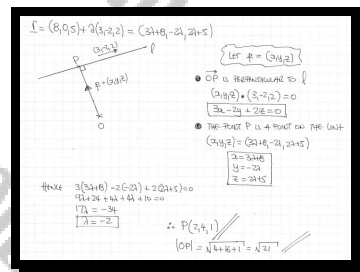 r = (8,0,5) + λ(3,-2,2) = (3λ+8, -2λ, 2λ+5)
(3,-2,2)
l
P
p = (x,y,z)
O
LET p = (x,y,z)
OP IS PERPENDICULAR TO l
(x,y,z) • (3,-2,2) = 0
3x - 2y + 2z = 0
THE POINT P IS A POINT ON THE LINE
(x,y,z) = (3λ+8, -2λ, 2λ+5)
x = 3λ+8
y = -2λ
z = 2λ+5
HENCE 3(3λ+8) - 2(-2λ) + 2(2λ+5) = 0
9λ + 24 + 4λ + 4λ + 10 = 0
17λ = -34
λ = -2
∴ P(2,4,1)
|OP| = √4+16+1 = √21